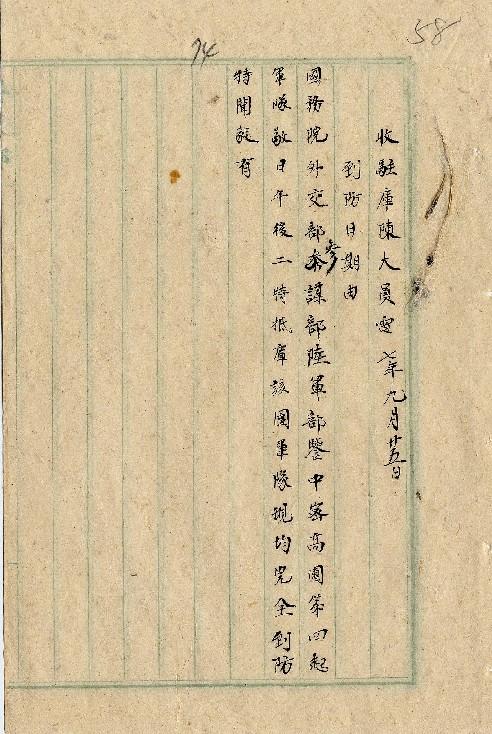 58
74
收駐庫陳大員電 七年九月廿五日
到防日期由
國務院外交部參謀部陸軍部鑒中密高團第四起
軍隊敬日午後二時抵庫該團軍隊現均完全到防
特聞毅宥